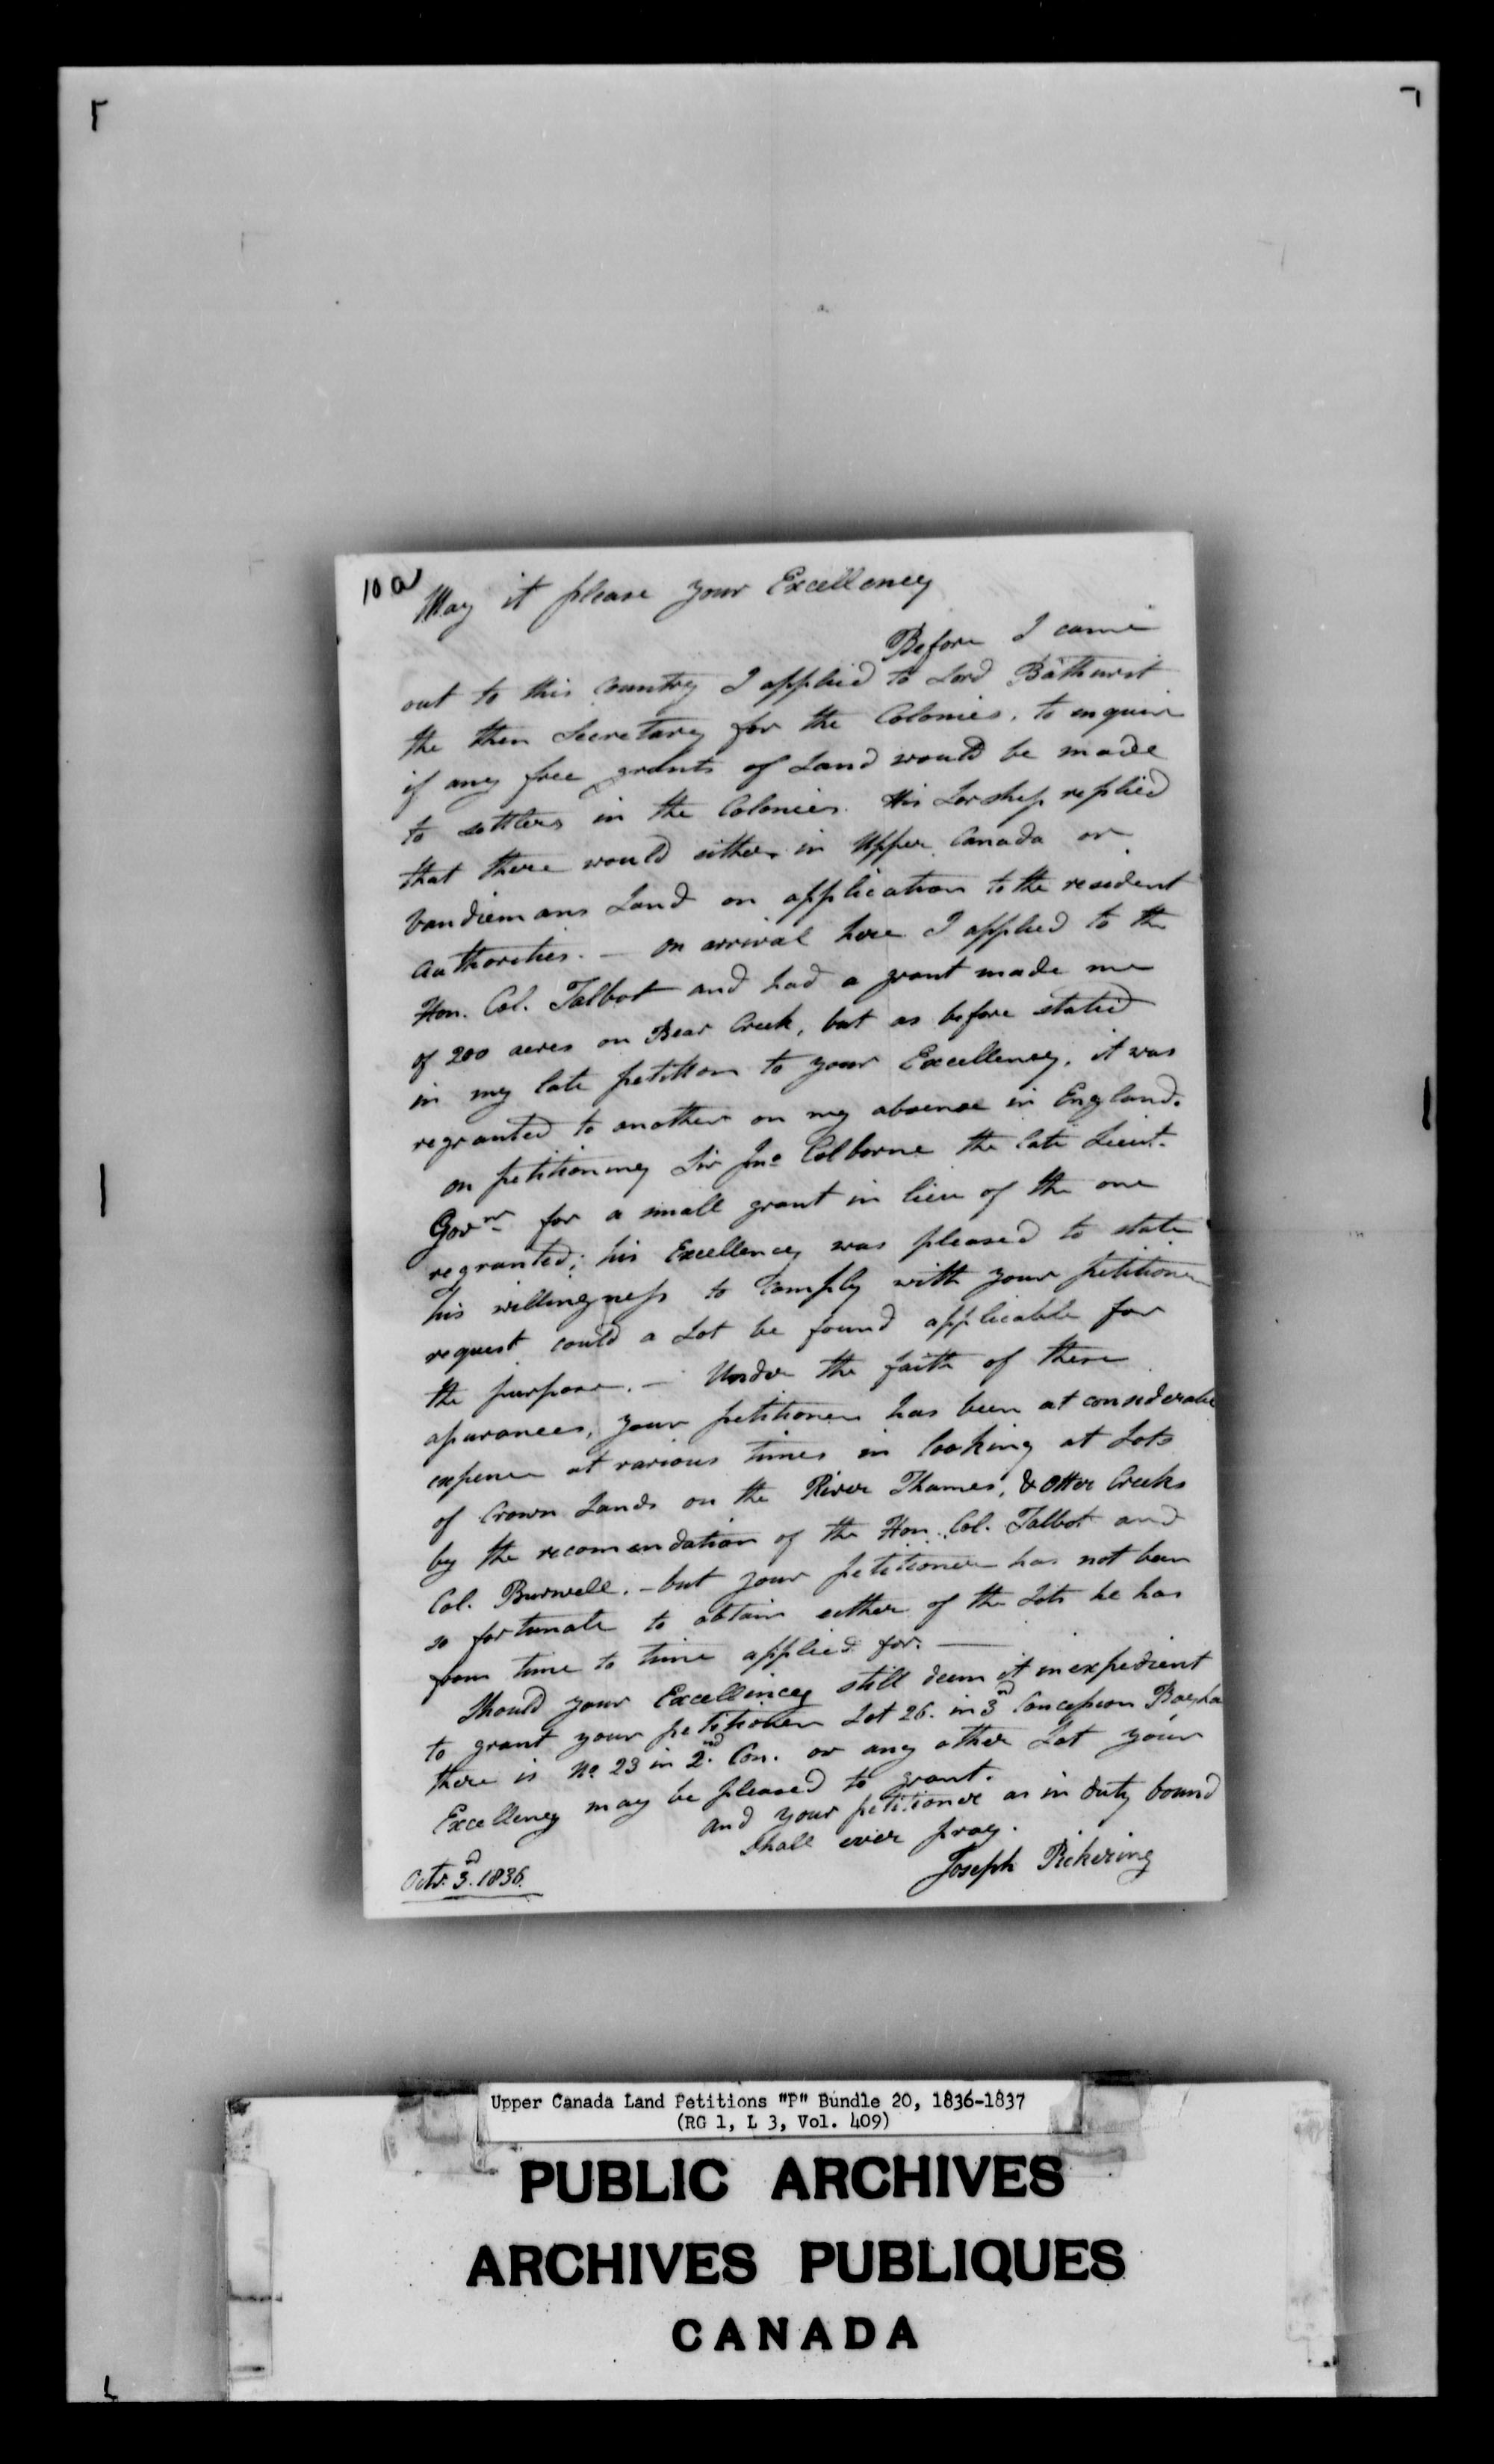 10 a
May it please your Excellency
Before I came
out to this Country I applied to Lord Bathurst
the then Secretary for the Colonies, to inquire
if any free grants of Land would be made
to settlers in the Colonies. His Lorship replied
that there would either in Upper Canada or
Vandiemans Land on application to the resident
authorities. — on arrival here I applied to the
Hon. Col. Talbot and had a grant made me
of 200 acres on Bear Creek, but as before stated
in my late petition to your Excellency, it was
regranted to another on my absence in England.
on petitioning Sir Jno Colborne the late Lieut.
Govnr for a small grant in lieu of the one
regranted; his Excellency was pleased to state
his willingness to comply with your petitioner
request could a Lot be found applicable for
the purpose. — Under the faith of these
assurances, your petitioner has been at considerable
expense at various times in looking at Lots
of Crown Lands on the River Thames, & Otter Creeks
by the recomendation of the Hon. Col. Talbot and
Col. Burwell. - but your petitioner has not been
so fortunate to obtain either of the Lots he has
from time to time applied for. —
Should your Excellency still deem it inexpedient
to grant your petitioner Lot 26. in 3rd Concession
there is No. 23 in 2nd Con. or any other Lot your
Excellency may be pleased to grant.
and your petitioner as in duty bound
shall ever pray.
Joseph Pickering
Octr. 3d. 1836.
Upper Canada Land Petitions "P" Bundle 20, 1836-1837
(RG 1, L 3, Vol. 409)
PUBLIC ARCHIVES
ARCHIVES PUBLIQUES
CANADA